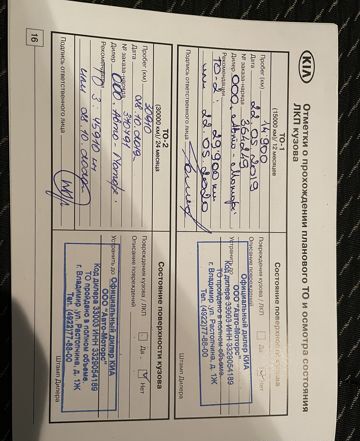 KIA
Отметки о прохождении планового ТО и осмотра состояния
ЛКП кузова
ТО-1
(15000 км)/ 12 месяцев
Состояние поверхности кузова
Пробег (км) 14 900
Дата 22 05 2019
№ заказа-наряда
Дилер ООО „Авто-Моторс"
Рекомендации:
ТО-2: 29 900 км
или 22 05 2020
Подпись ответственного лица
Повреждения кузова / ЛКП Да Нет
Описание повреждений
Официальный дилер КИА
ООО "Авто-Моторс"
Код дилера 33003 ИНН 3329054189
ТО пройдено в полном объеме
г. Владимир, ул. Растопчина, д. 1Ж
Тел. (4922)77-88-00
Устранить до
Штамп Дилера
ТО-2
(30000 км)/ 24 месяца
Состояние поверхности кузова
Пробег (км) 30910
Дата 08 10 2019
№ заказа-наряда
Дилер ООО „Авто-Моторс"
Рекомендации:
ТО 3. 45910 км
или 08 10 2020
Подпись ответственного лица
Повреждения кузова / ЛКП Да Нет
Описание повреждений
Устранить до
Официальный дилер КИА
ООО "Авто-Моторс"
Код дилера 33003 ИНН 3329054189
ТО пройдено в полном объеме
г. Владимир, ул. Растопчина, д. 1Ж
Тел. (4922)77-88-00
Штамп Дилера
16